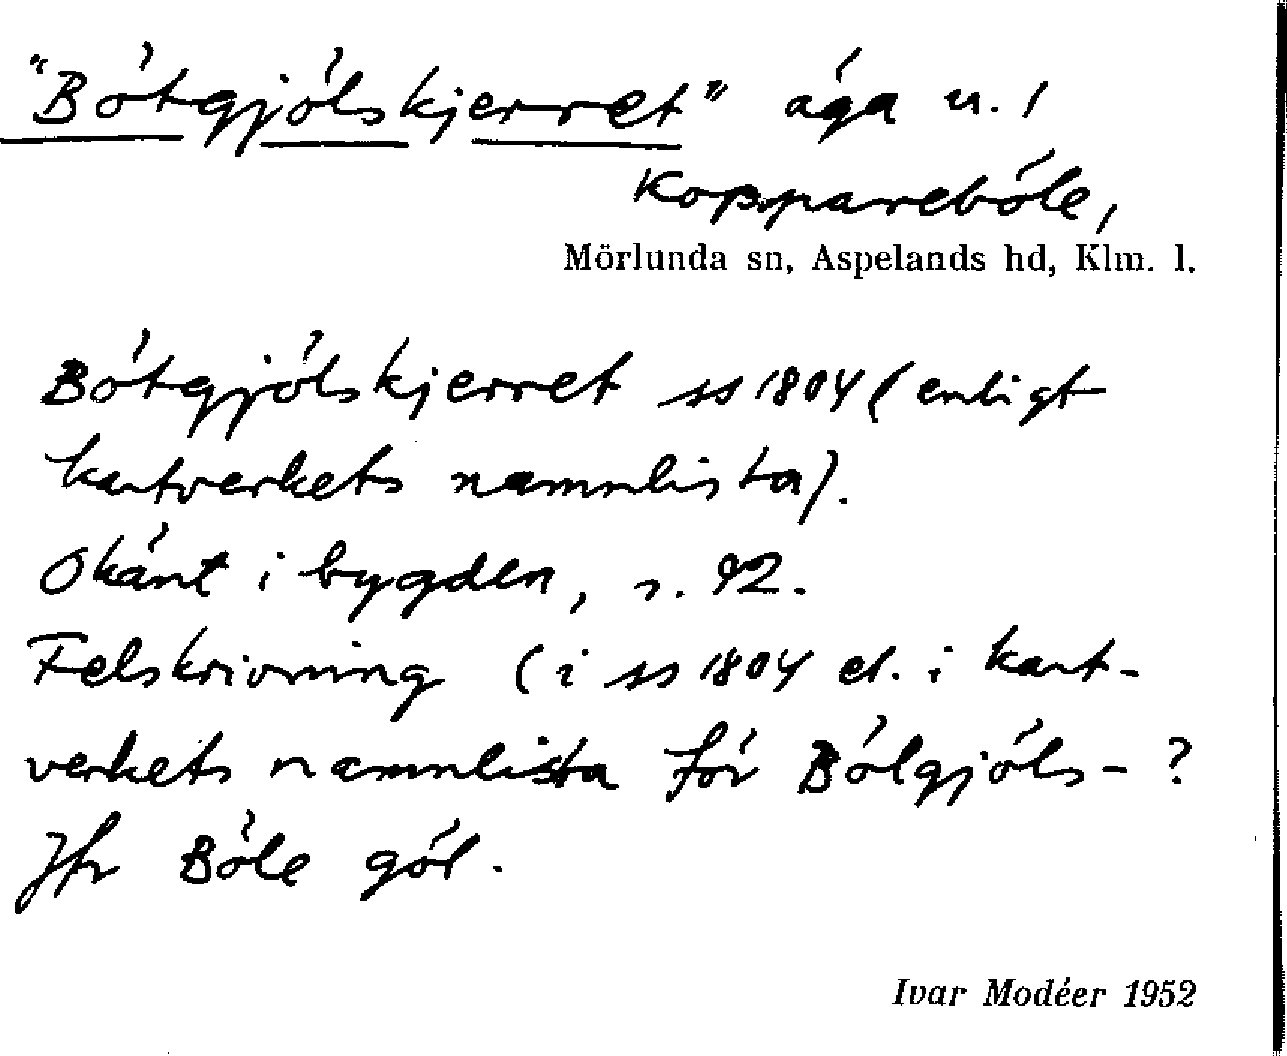 "Bötgjölskjerret" äga u. 1
Koppareböle,
Mörlunda sn, Aspelands hd, Klm. l.
Bötgjölskjerret ss 1804 (enligt
kartverkets namnlista).
Okänt i bygden, s. 92.
Felskrivning (i ss 1804 el. i kart-
verkets namnlista för Bölgjöls- ?
Jfr Böle göl.
Ivar Modéer 1952